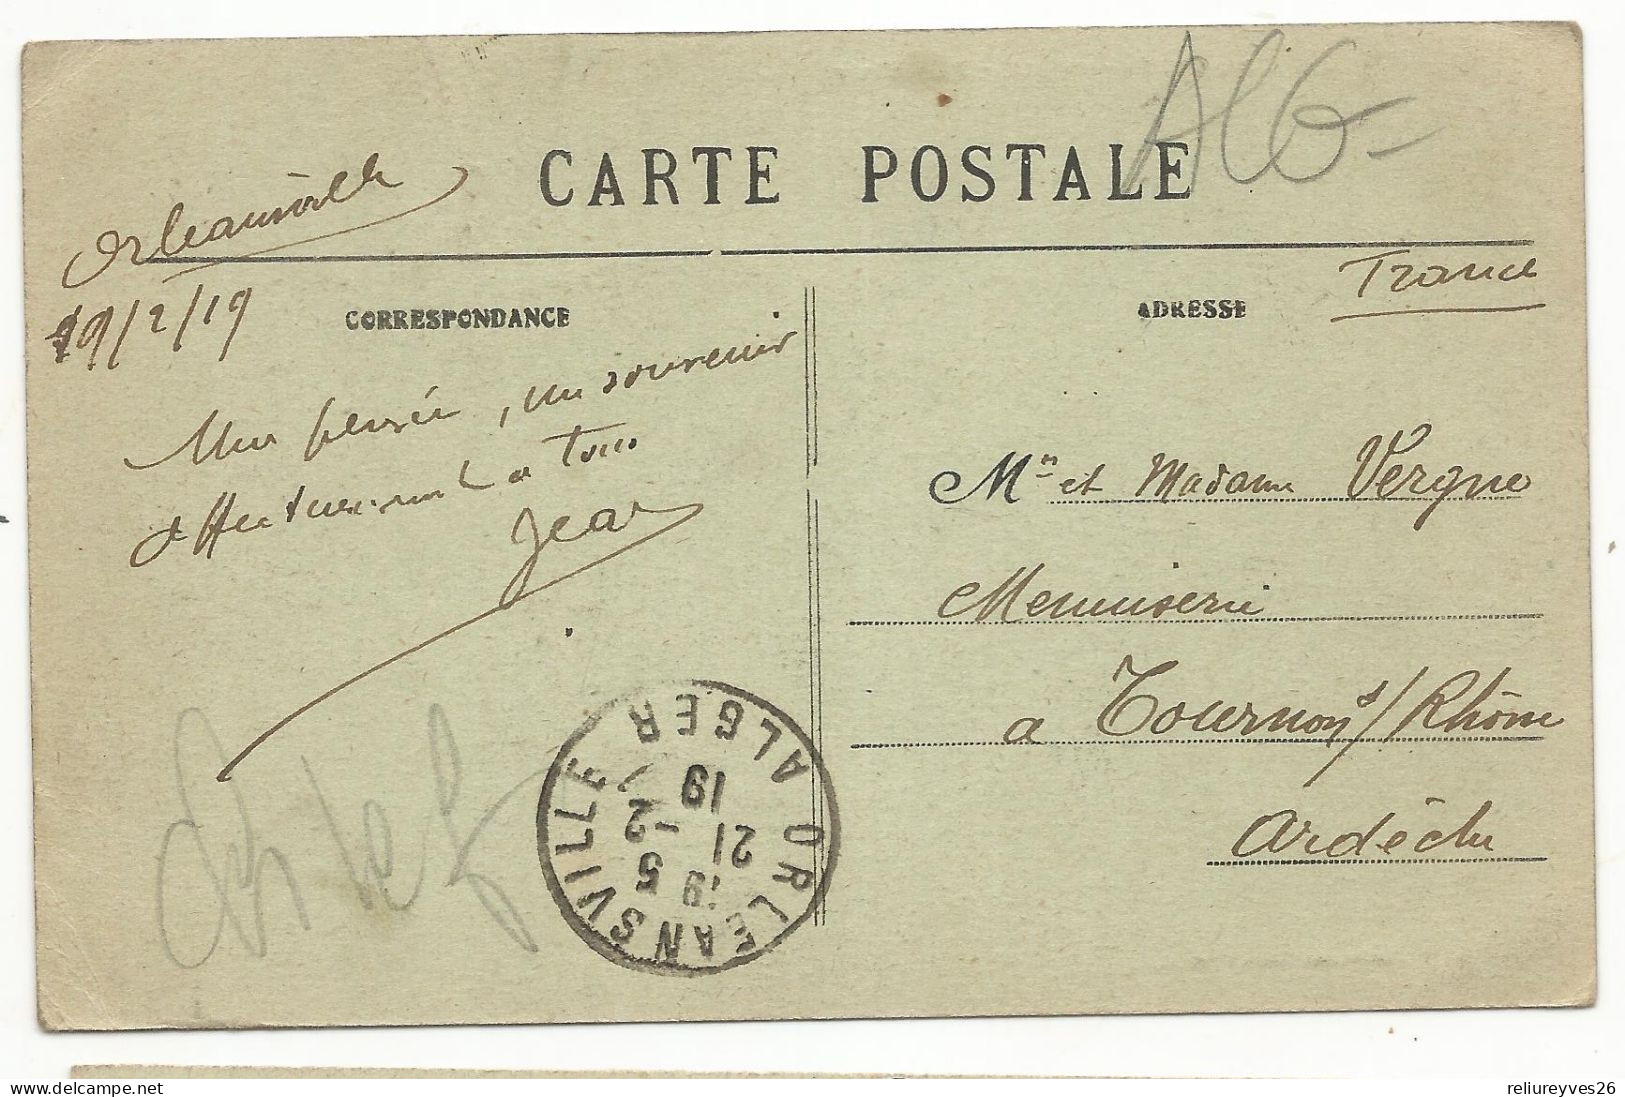 CARTE POSTALE
Alg-
Orleansville
19/2/19
CORRESPONDANCE
ADRESSE
France
Une pensée, un souvenir
affectueusement a Tous
Jean
Mr et Madame Vergne
Menuiserie
a Tournon s/Rhône
Ardèche
ORLEANSVILLE
ALGER
19 5
21 -2
19
reliureyves26
delcampe.net